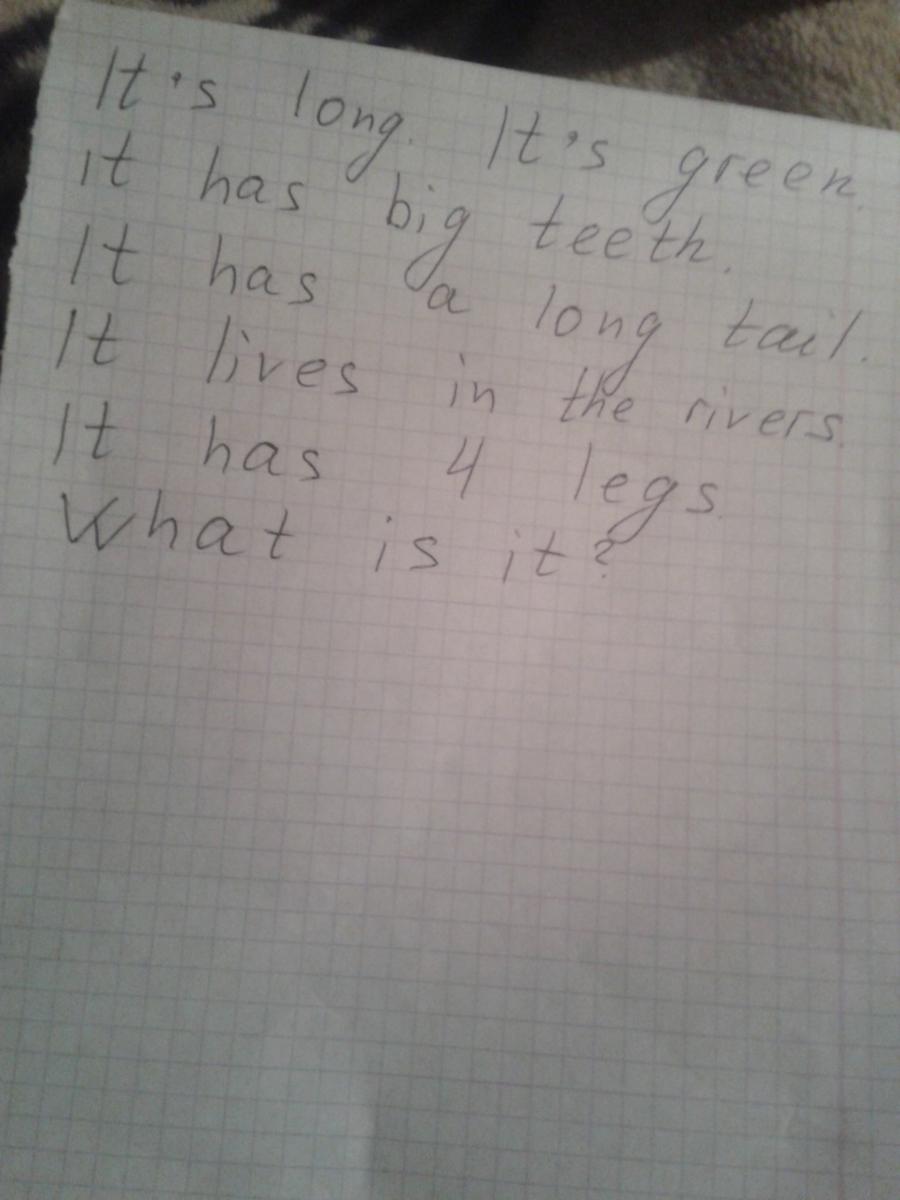 It's long. It's green.
it has big teeth.
It has a long tail.
It lives in the rivers.
It has 4 legs.
What is it?